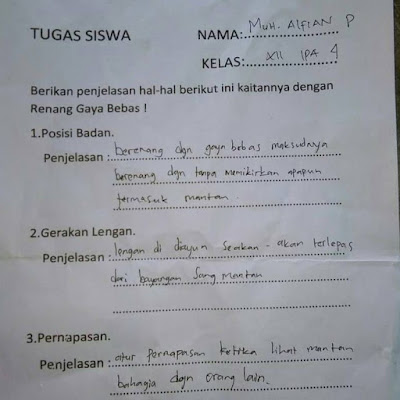 TUGAS SISWA
NAMA: Muh. Alfian P
KELAS: XII IPA 4
Berikan penjelasan hal-hal berikut ini kaitannya dengan
Renang Gaya Bebas !
1.Posisi Badan.
Penjelasan : berenang dgn gaya bebas maksudnya
berenang dgn tanpa memikirkan apapun
termasuk mantan.
2.Gerakan Lengan.
Penjelasan : lengan di diayun seakan-akan terlepas
dari bayangan sang mantan
3.Pernapasan.
Penjelasan : atur pernapasan ketika lihat mantan
bahagia dgn orang lain.